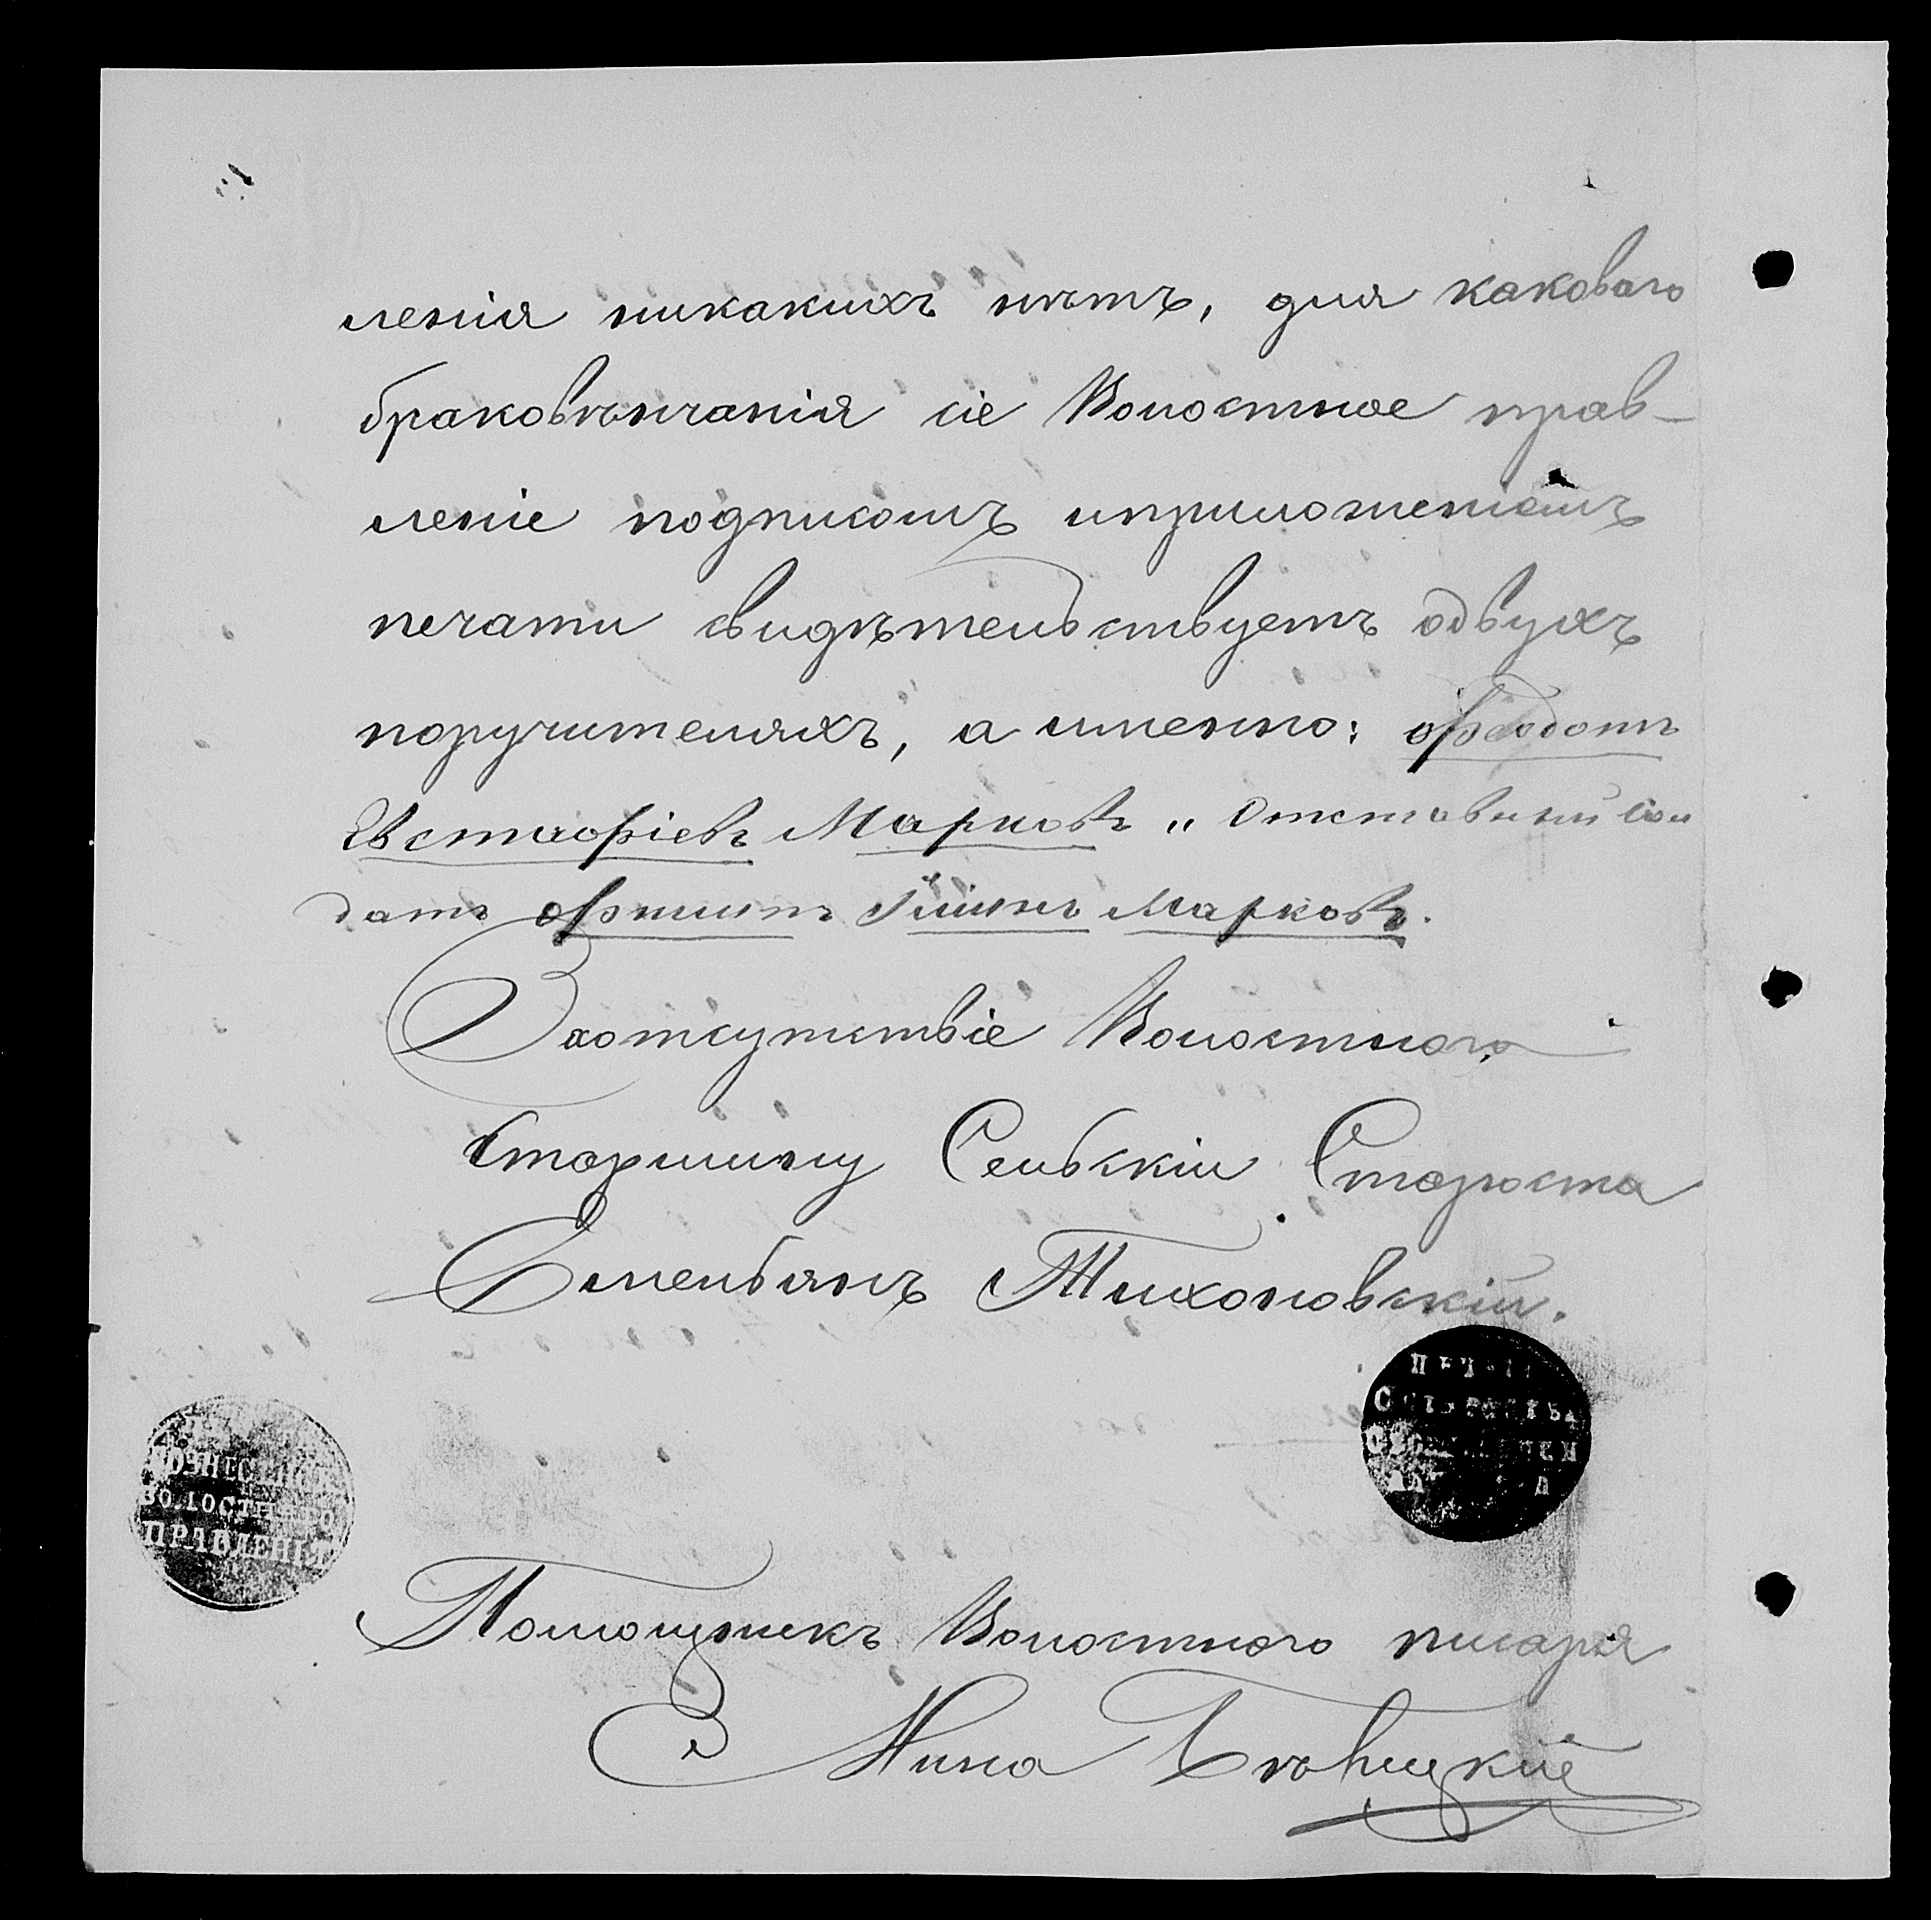 ленія никакихъ нѣтъ, для каковаго
браковѣнчанія сіе Волостное прав-
леніе подписомъ иприложеніемъ
печати свидѣтельствуетъ одвухъ
поручителяхъ, а именно: Феодотъ
Евстафіевъ Марковъ „ Отставный Сол
датъ Филипъ Марковъ.
Заотсутствіе Волостного
Старшину Сельскій Староста
Емельянъ Тихоновскій.
ВОЛОСТНАГО
ПРАВЛЕНІЯ
Помощникъ Волостного писаря
Мина